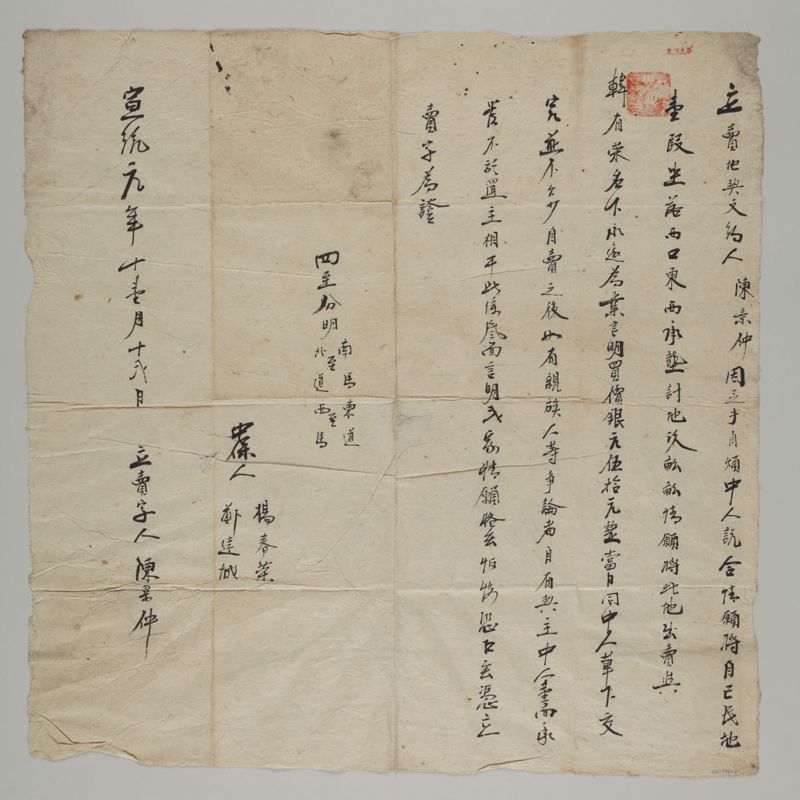 立賣地契文約人陳景仲因手自煩中人說合情願將自己民地
壹段坐落西口東西承墾計地玖畝畝情願將此地出賣與
韓有榮名下永遠為業言明買價銀元伍拾元整當日同中人筆下交
完並不欠少自賣之後如有親族人等爭論者自有典主中人面承
當不於置主相干此係對面言明式家情願恐口無憑立
賣字為證
四至分明
南至馬
東至道
北至道
西至馬
中保人
楊春榮
鄭達城
宣統元年十壹月十弍日
立賣字人陳景仲